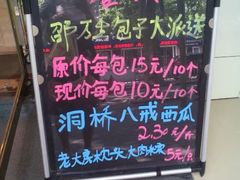 包子大派送
原价每包15元/10个
现价每包10元/10个
洞桥八戒西瓜
2.30元/斤
老大房
大肉
5元/只